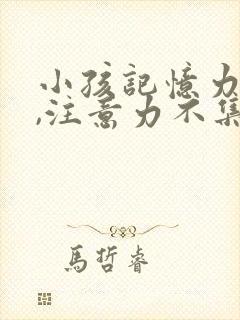 小孩記憶力
,注意力不集
馬哲睿